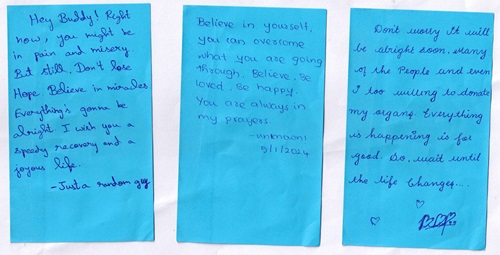 Hey Buddy! Right
now, you might be
in pain and misery
But still, Don't lose
Hope. Believe in miracles
Everything's gonna be
alright. I wish you a
speedy recovery and a
joyous life.
-Just a random guy
Believe in yourself,
you can overcome
what you are going
through. Believe, Be
loved, Be happy.
You are always in
my prayers
-unknown
5/1/2024
Don't worry it will
be alright soon. Many
of the People and even
I too willing to donate
my organs. Everything
is happening is for
good. So, wait until
the life Changes...